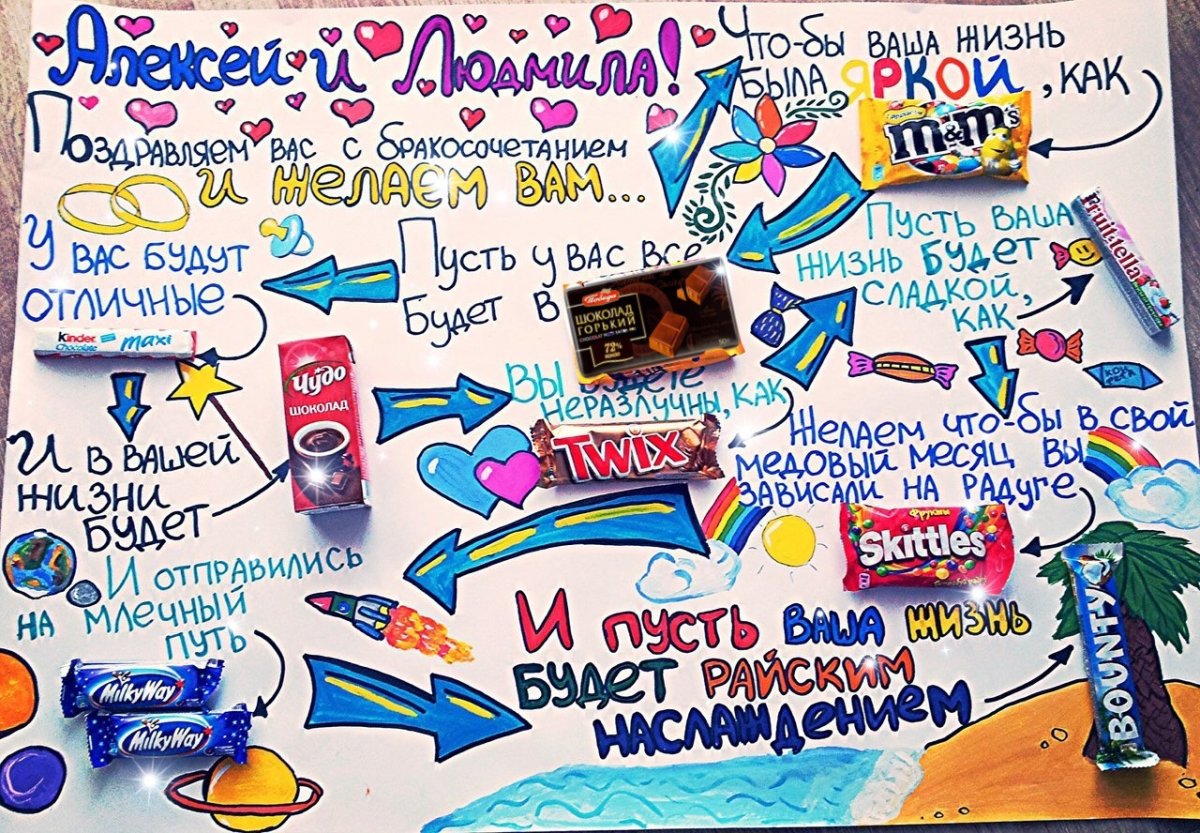 Алексей и Людмила!
Поздравляем вас с бракосочетанием
и желаем вам...
Что-бы ваша жизнь
была яркой, как
m&m's
Пусть у вас все
будет в
Победа
ШОКОЛАД
ГОРЬКИЙ
72%
У вас будут
отличные
Kinder
Chocolate
maxi
И в вашей
жизни
будет
Чудо
ШОКОЛАД
Вы будете
неразлучны, как
TWIX
Пусть ваша
жизнь будет
сладкой,
как
Fruit-tella
Желаем что-бы в свой
медовый месяц вы
зависали на радуге
Фрукты
Skittles
И отправились
на млечный
путь
MilkyWay
MilkyWay
И пусть ваша жизнь
будет райским
наслаждением
BOUNTY